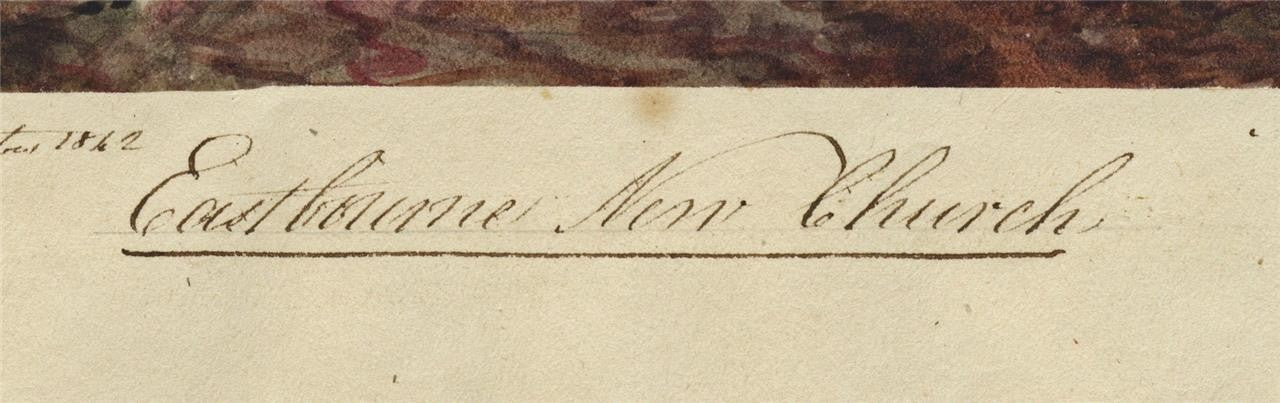 1842
Eastbourne New Church